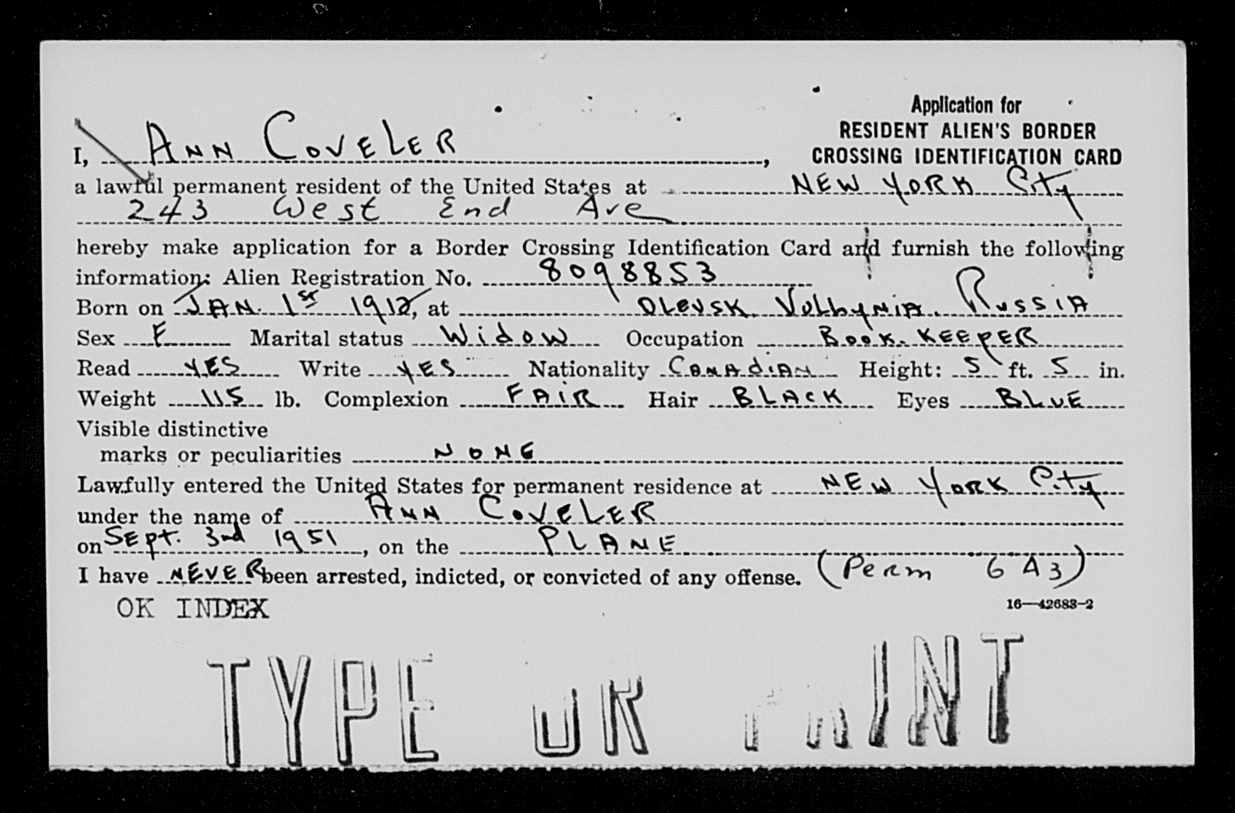 Application for
RESIDENT ALIEN'S BORDER
CROSSING IDENTIFICATION CARD
I, ANN COVELER,
a lawful permanent resident of the United States at NEW YORK City
243 West End Ave
hereby make application for a Border Crossing Identification Card and furnish the following
information: Alien Registration No. 8098853
Born on JAN. 1st 1912, at OLEVSK VOLHYNIA. RUSSIA
Sex F Marital status WIDOW Occupation BOOK-KEEPER
Read YES Write YES Nationality CANADIAN Height: 5 ft. 5 in.
Weight 115 lb. Complexion FAIR Hair BLACK Eyes BLUE
Visible distinctive
marks or peculiarities NONE
Lawfully entered the United States for permanent residence at NEW YORK City
under the name of ANN COVELER
on SEPT. 3rd 1951, on the PLANE
I have NEVER been arrested, indicted, or convicted of any offense. (Perm 6A3)
OK INDEX
16—42683-2
TYPE OR PRINT